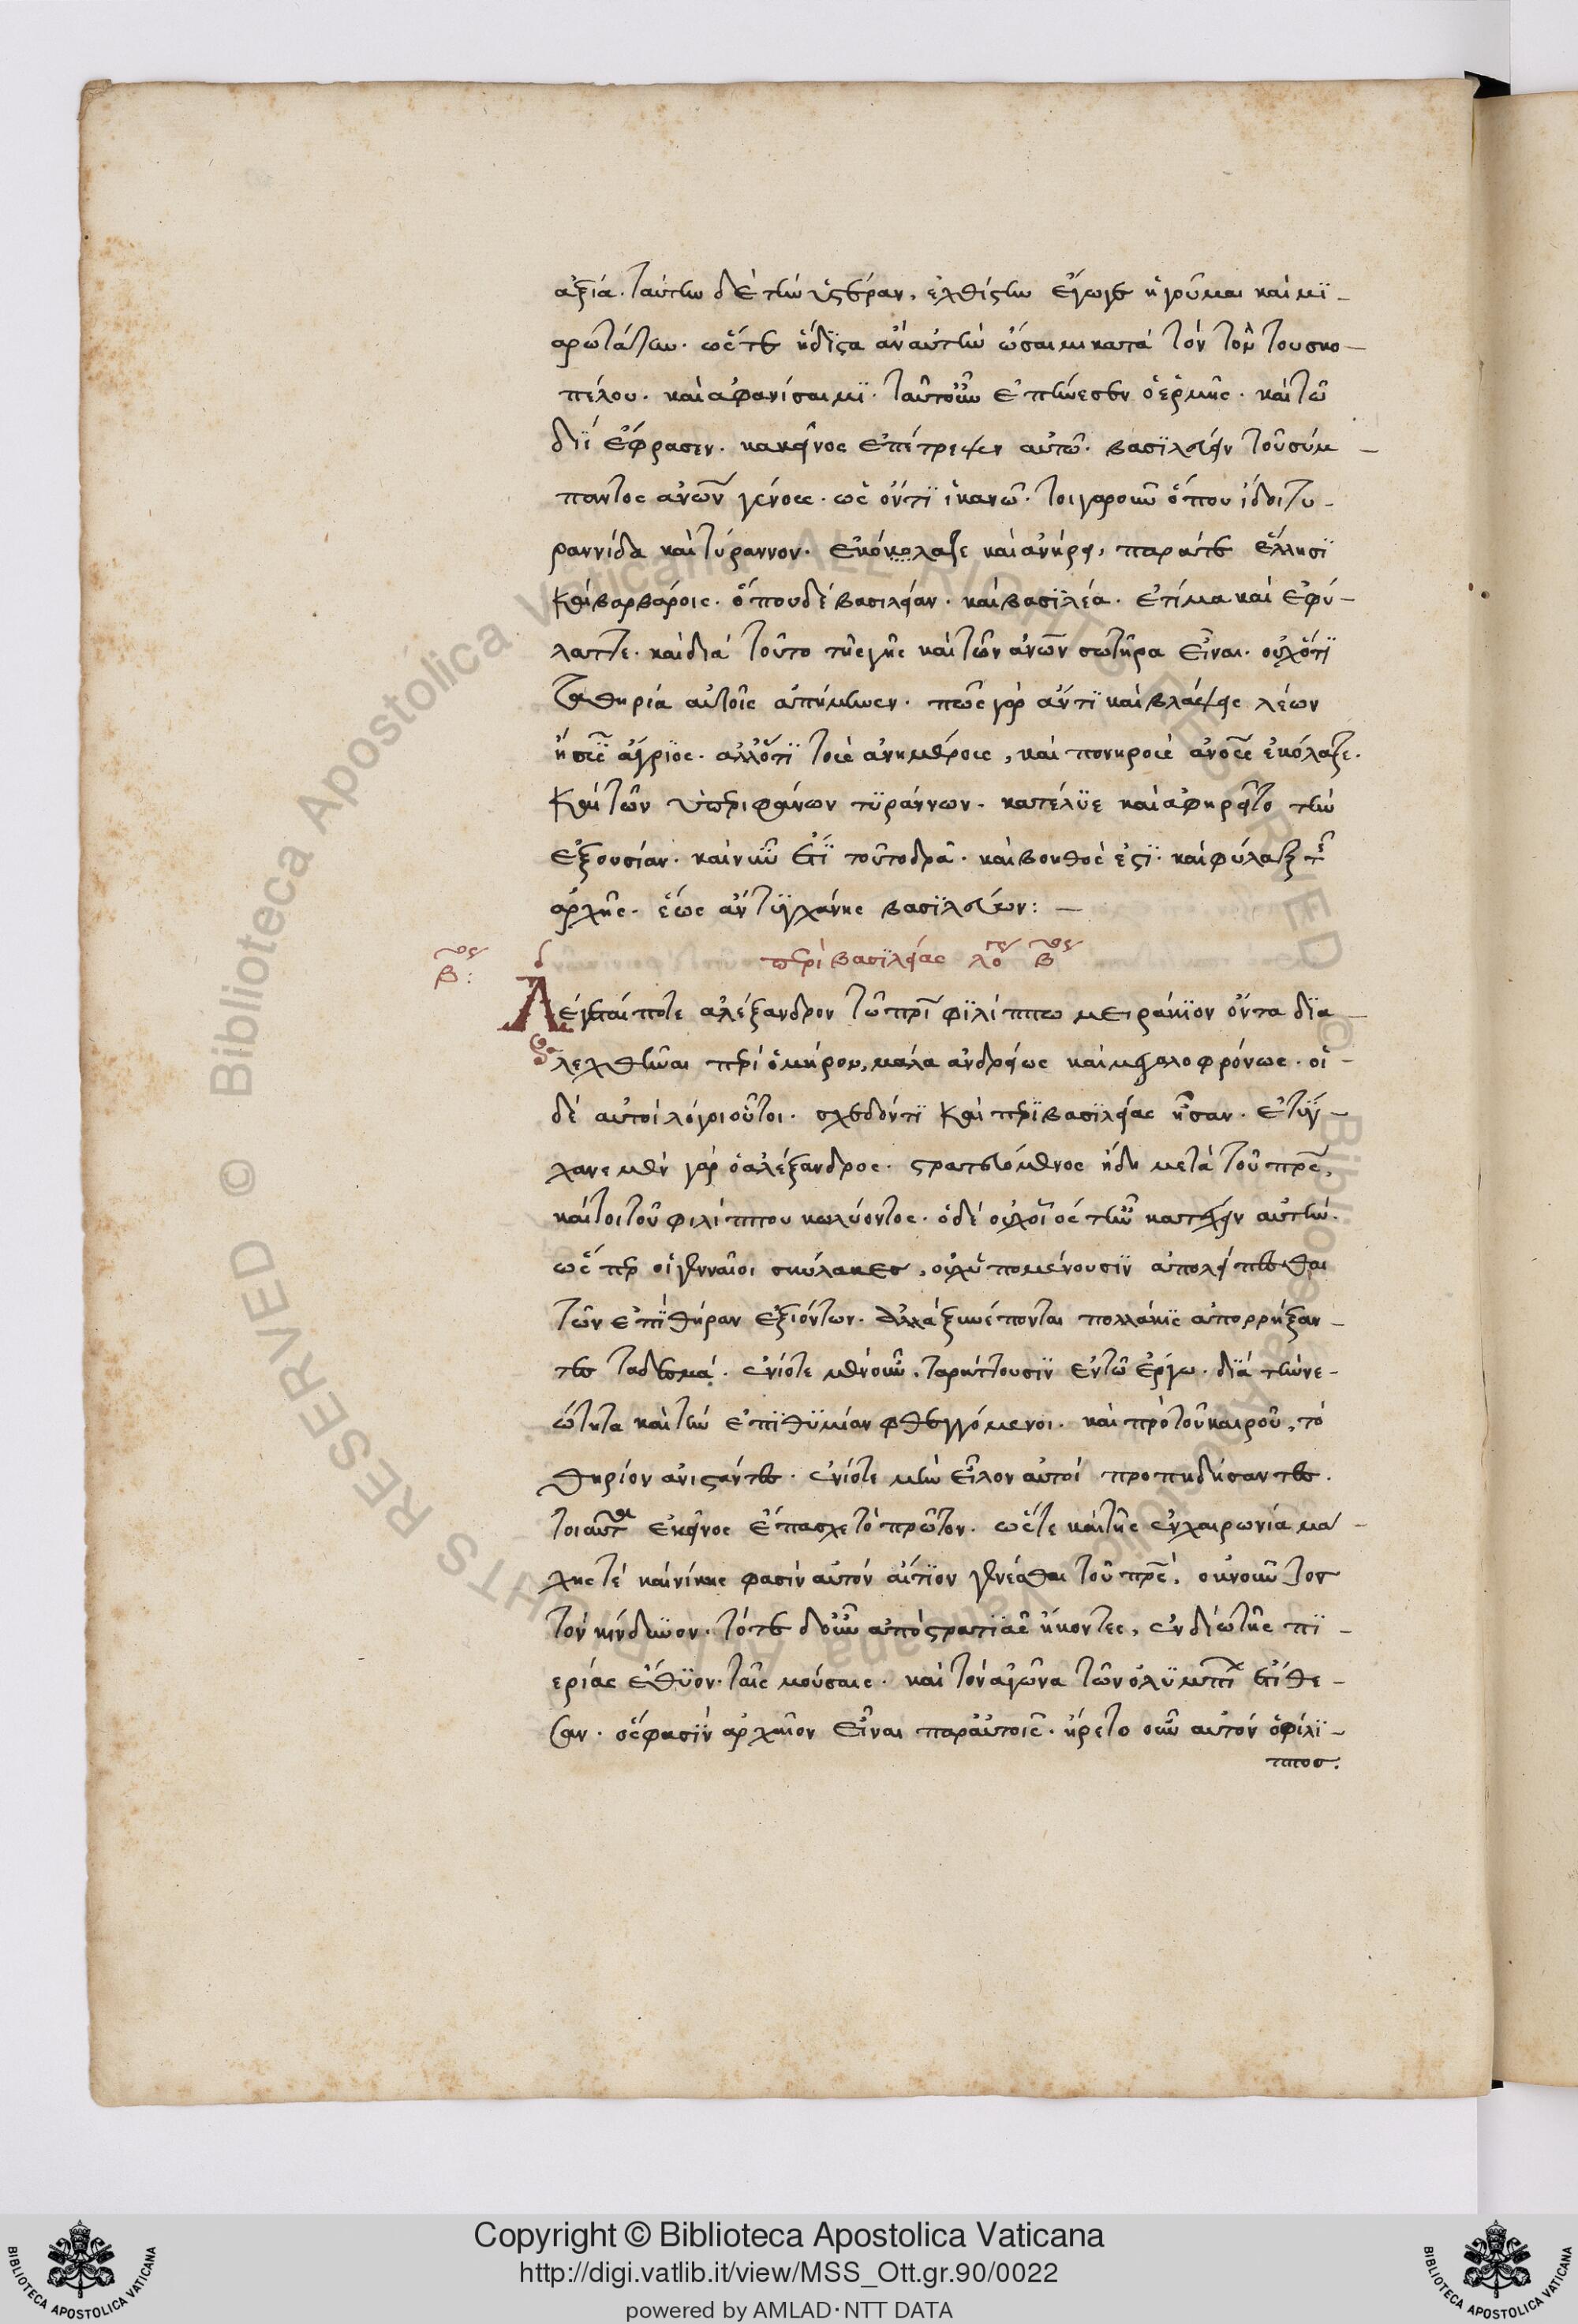 ἀξία. ταύτην δὲ τὴν ὑστέραν, ἐχθίστην ἔγωγε ἡγοῦμαι καὶ μϊ-
αρωτάτην. ὥστε ἥδϊστα ἂν αὐτὴν ὤσαιμι κατὰ τὸν τοῦ σκο-
πέλου. καὶ ἀφανίσαιμϊ. ταῦτ' οὖν ἐπήνεσεν ὁ ἑρμῆς. καὶ τῶ
διΐ ἔφρασεν. κακεῖνος ἐπέτρεψεν αὐτῶ. βασϊλεύειν τοῦ σύμ-
παντος ἀνων γένους. ὡς ὄντϊ ἱκανῶ. τοιγαροῦν ὅπου ἴδοι τυ-
ραννίδα καὶ τύραννον. ἐκόκολαζε καὶ ἀνήρει, παρά τε ἕλλησϊ
καὶ βαρβάροις. ὅπου δὲ βασιλείαν. καὶ βασϊλέα. ἐτίμα καὶ ἐφύ-
λαττε. καὶ διὰ τοῦτο τῆς γῆς καὶ τῶν ἀνων σωτῆρα εἶναι. οὐχ ὅτϊ
τὰ θηρία αὐτοῖς ἀπήμυνεν. πῶς γὰρ ἄν τϊ καὶ βλάψαι λέων
ἢ σῦς ἄγριος. ἀλλ' ὅτϊ τοὺς ἀνημέρους, καὶ πονηροὺς ἀνους ἐκόλαζε.
καὶ τῶν ὑπεριφάνων τϋράννων. κατέλϋε καὶ ἀφηρεῖτο τὴν
ἐξουσίαν. καὶ νῦν ἔτϊ τοῦτο δρᾶ. καὶ βοηθός ἐστϊ. καὶ φύλαξ τῆς
ἀρχῆς. ἕως ἂν τυγχάνης βασϊλεύων: —
περὶ βασϊλείας λό β
β:
Λέγεταί ποτε ἀλέξανδρον τῶ πρϊ φϊλίππω μειράκϊον ὄντα δϊα-
λεχθῆναι περὶ ὁμήρου, μάλα ἀνδρείως καὶ μεγαλοφρόνως. οἱ-
δὲ αὐτοὶ λόγοι οὗτοι. σχεδόν τϊ καὶ περὶ βασϊλείας ἦσαν. ἐτύγ-
χανε μὲν γὰρ ὁ ἀλέξανδρος. στρατευόμενος ἤδη μετὰ τοῦ πρς,
καίτοι τοῦ φιλίππου κωλύοντος. ὁ δὲ οὐχ οἷός τ' ἦν κατέχειν αὑτὴν.
ὥσπερ οἱ γενναῖοι σκύλακες, οὐχ ὑπομένουσϊν ἀπολείπεσθαι
τῶν ἐπὶ θήραν ἐξιόντων. ἀλλὰ ξυνέπονται πολλάκϊς ἀπορρήξαν-
τες τὰ δεσμά. ἐνίοτε μὲν οὖν. ταράττουσϊν ἐν τῶ ἔργω. δϊὰ τὴν νε-
ότητα καὶ τὴν ἐπϊθϋμίαν φθεγγόμενοι. καὶ πρὸ τοῦ καιροῦ, τὸ
θηρίον ἀνιστάντες. ἐνίοτε μὴν εἷλον αὐτοὶ προπηδήσαντες.
τοιαῦτα ἐκεῖνος ἔπασχε τὸ πρῶτον. ὥστε καὶ τῆς ἐν χαιρωνία μά-
χης τὲ καὶ νίκης φασὶν αὐτὸν αἴτϊον γενέσθαι τοῦ πρς, οὐκνοῦντος
τὸν κίνδυνον. τότε δ' οὖν ἀπὸ στρατϊᾶς ἥκοντες, ἐν δίω τῆς πϊ-
ερίας ἔθϋον. ταῖς μούσαις. καὶ τὸν ἀγῶνα τῶν ὀλϋμπϊ ἐτίθε-
σαν. ὅς φασϊν ἀρχαῖον εἶναι παρ' αὐτοῖς. ἤρετο οὖν αὐτὸν ὁ φίλϊ-
ππος.
Copyright © Biblioteca Apostolica Vaticana
http://digi.vatlib.it/view/MSS_Ott.gr.90/0022
powered by AMLAD·NTT DATA